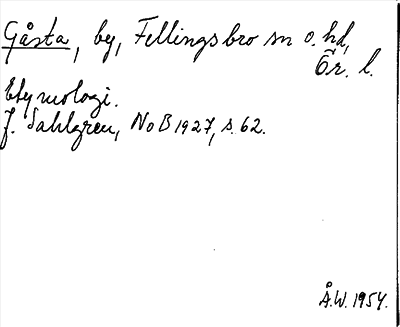 Gåsta, by, Fellingsbro sn o. hd,
Ör. l.
Etymologi.
J. Sahlgren, NoB 1927, s. 62.
Å.W. 1954.